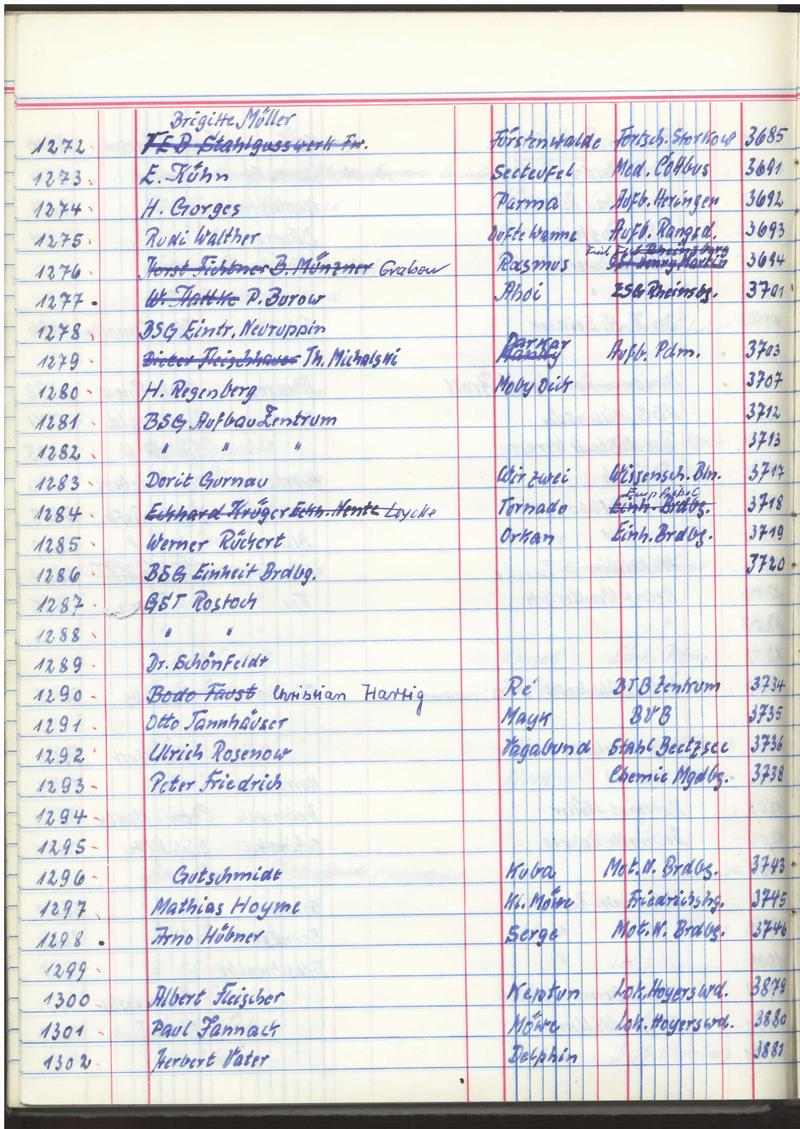 Brigitte Müller
1272 VEB Stahlgusswerk Fw. Fürstenwalde Fortsch. Storkow 3685
1273 E. Kühn Seeteufel Med. Cottbus 3691
1274 H. Gorges Parma Aufb. Heringen 3692
1275 Rudi Walther Dufte Wanne Aufb. Rangsd. 3693
1276 Horst Fichtner B. Münzner Grabow Rasmus 3694
1277 P. Burow Ahoi ZSG Rheinsbg. 3701
1278 BSG Eintr. Neuruppin
Parkar
1279 Dieter Fleischhauer Th. Michalski Aufb. Pdm. 3703
1280 H. Regenberg Moby Dick 3707
1281 BSG Aufbau Zentrum 3712
1282 " " " 3713
1283 Dorit Gurnau Wir zwei Wissensch. Bln. 3717
1284 Eckhard Krüger Eckh. Nente Leycke Tornado Einh. Brdbg. 3718
1285 Werner Rückert Orkan Einh. Brdbg. 3719
1286 BSG Einheit Brdbg. 3720
1287 GST Rostock
1288 " "
1289 Dr. Schönfeldt
1290 Bodo Faust Christian Hartig Ré BTB Zentrum 3734
1291 Otto Tannhäuser Mayk BVB 3735
1292 Ulrich Rosenow Vagabund Stahl Beetzsee 3736
1293 Peter Friedrich Chemie Mgdbg. 3738
1294
1295
1296 Gutschmidt Kuba Mot. W. Brdbg. 3743
1297 Mathias Hoyme Kl. Möwe Friedrichshg. 3745
1298 Arno Hübner Serge Mot. W. Brdbg. 3746
1299
1300 Albert Fleischer Neptun Lok. Hoyerswd. 3879
1301 Paul Jannack Möwe Lok. Hoyerswd. 3880
1302 Herbert Vater Delphin 3881